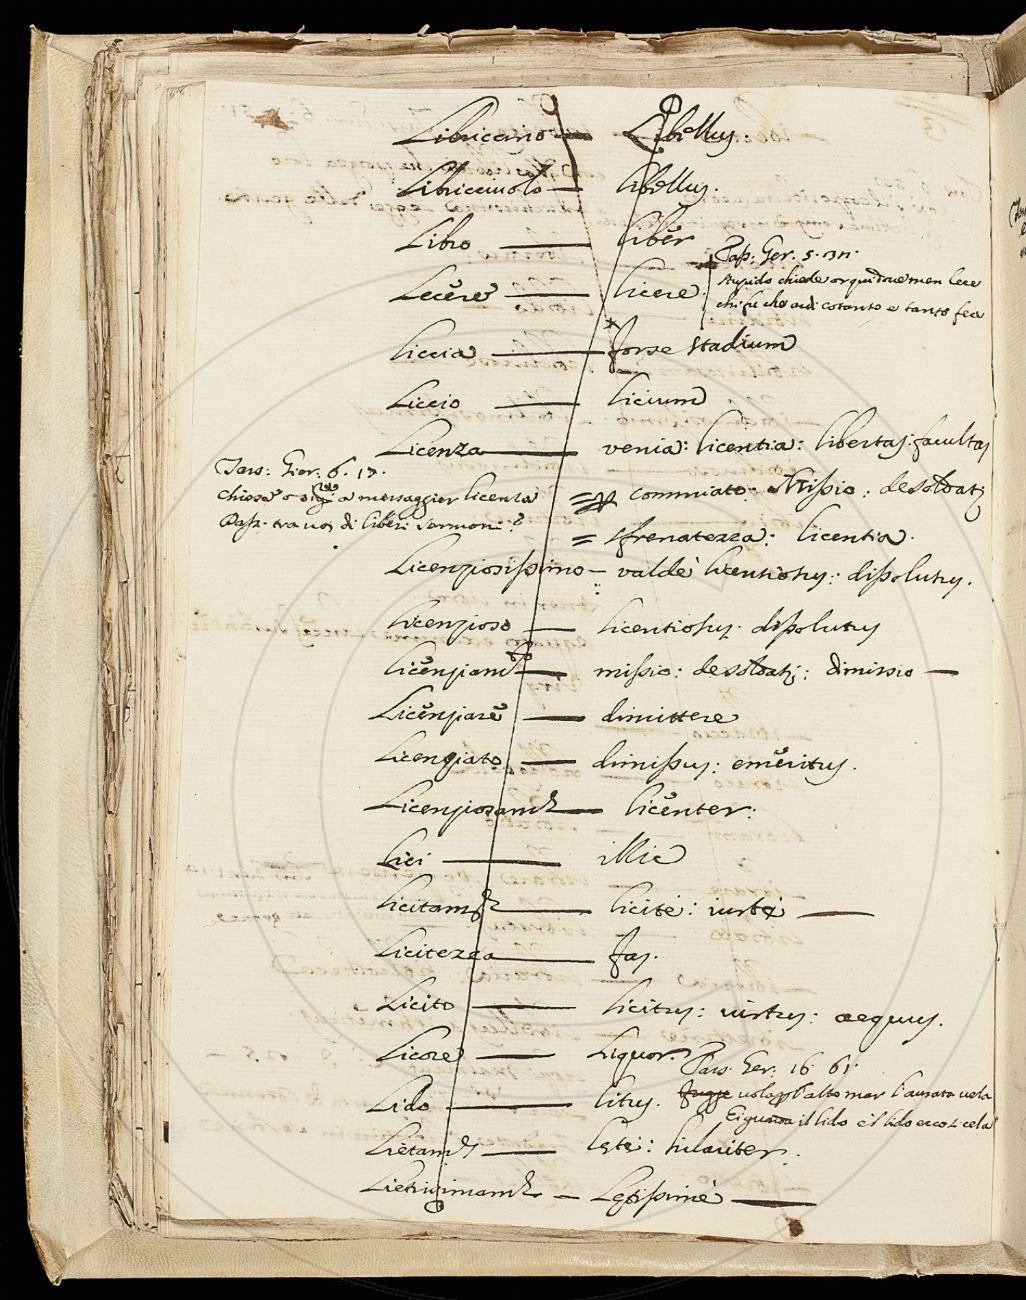 Libriccino — Libellus:
Libricciuolo — libellus.
Libro — libèr
Tass. Ger. 5.
Lecère — licere:
stupido chiede or qui dove men lece
chi fu ch' ardì cotanto e tanto fece
liccia — forse stadium
Liccio — licium
Licenza — venia: licentia: libertas: facultas
Tass: Gier: 6. 17.
chiese o
a messaggier licenza
= commiato: Missio: de soldati
Pass. tra voi di liberi sermoni?
= sfrenatezza: licentia.
Licenziosissimo — valdè licentiosus: dissolutus.
licenzioso — licentiosus. dissolutus
licenziamto — missio: de soldati: dimissio —
Licenziare — dimittere
licenziato — dimissus: emeritus.
Licenziosamte — licenter:
Lici — illic
Licitamte — licitè: iustè —
Licitezza — fas.
Licito — licitus: iustus: aequus.
Licore — Liquor.
Tass. Ger. 16. 61.
Lido — litus. fugge vola l'alto mar l'aurata vela
Ei guarda il lido e'l lido ecco si cela
Lietamte — lętè: hilariter.
Lietissimamte — Lętissimè —